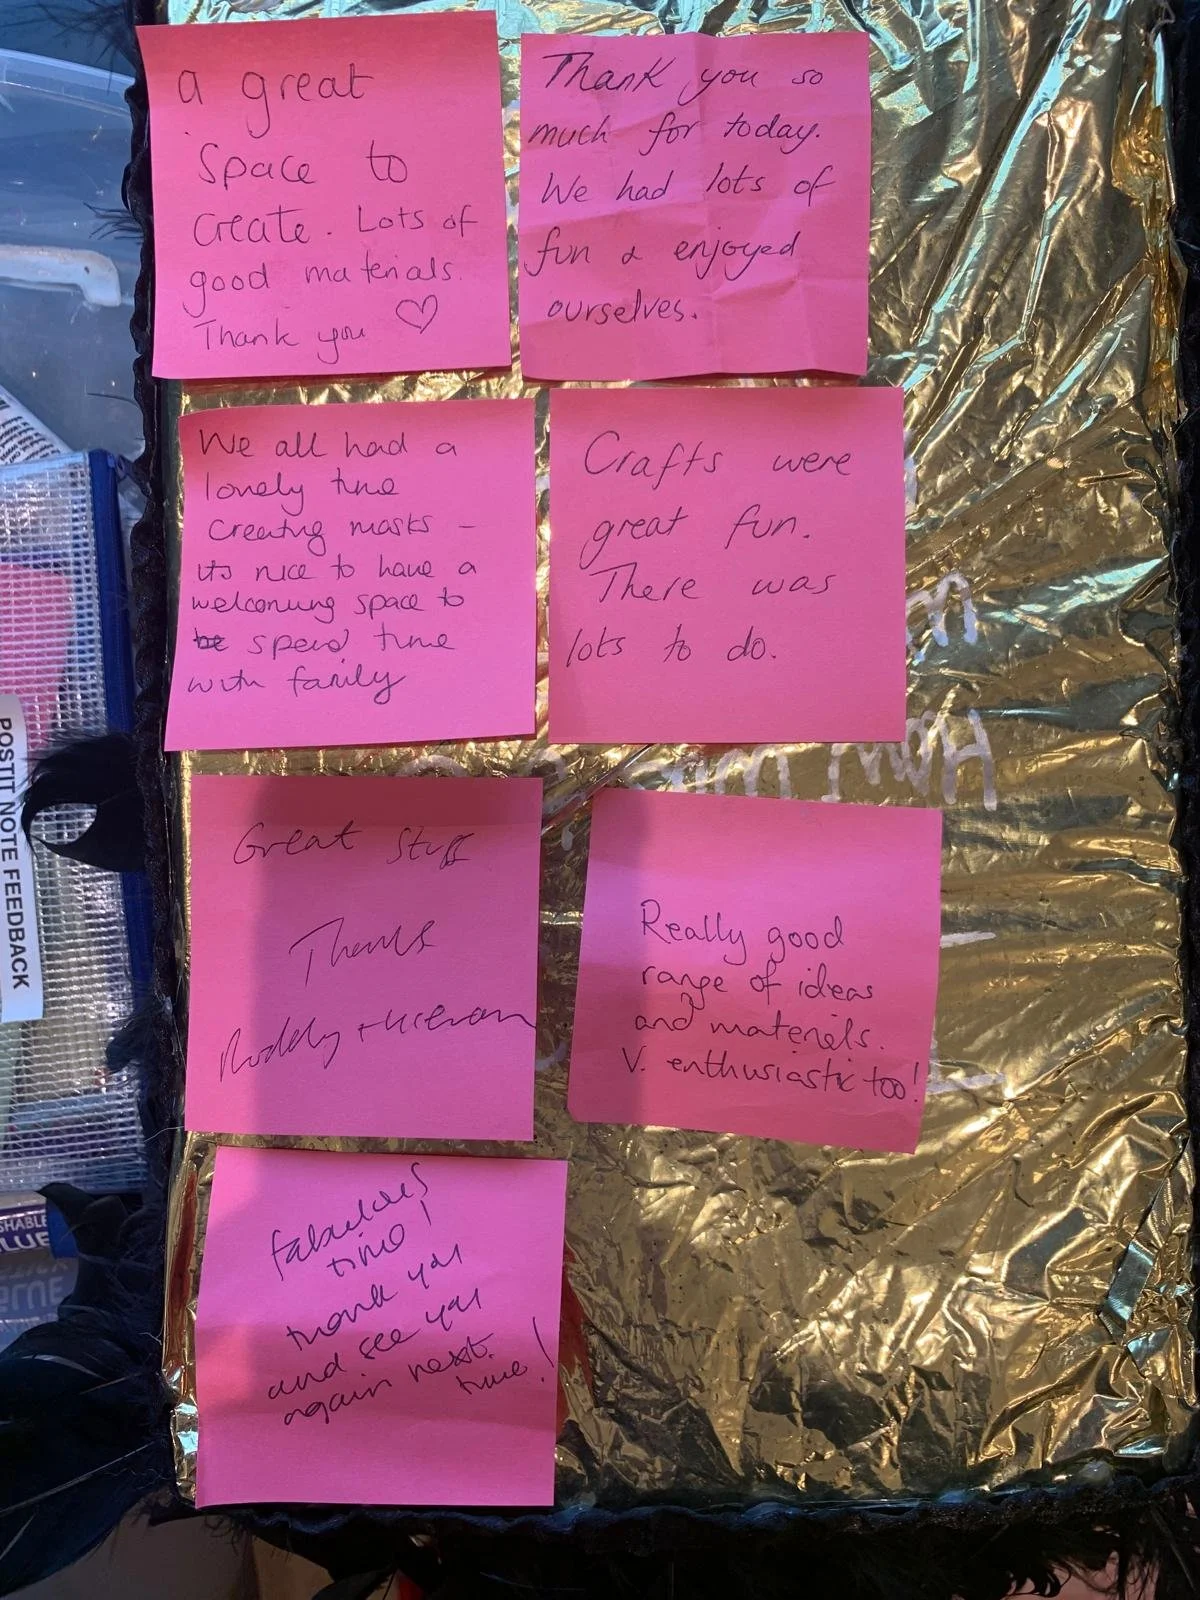 a great
space to
create. Lots of
good materials.
Thank you ♡
Thank you so
much for today.
We had lots of
fun & enjoyed
ourselves.
We all had a
lovely time
creating masks –
its nice to have a
welcoming space to
be spend time
with family
Crafts were
great fun.
There was
lots to do.
Great Stuff
Thanks
Roddy +
Really good
range of ideas
and materials.
V. enthusiastic too!
fabulous
time!
thank you
and see you
again next
time!
POSTIT NOTE FEEDBACK
How was